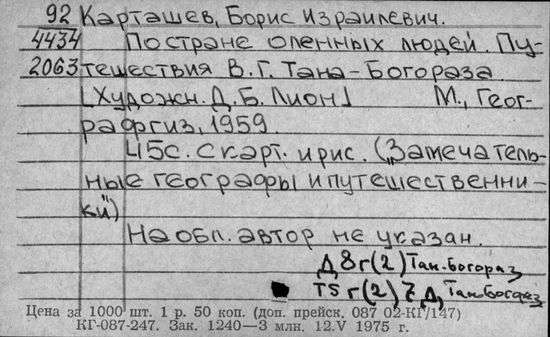 92 Карташев, Борис Израилевич.
4434 По стране оленных людей. Пу-
2063 тешествия В.Г. Тана-Богораза.
[Художн. Д.Б. Лион] М., Геог-
рафгиз, 1959.
45с. с карт. и рис. („Замечатель-
ные географы и путешественни-
ки")
На обл. автор не указан.
Д8г(2) Тан-Богораз
Т5г(2)7.Д, Тан-Богораз
Цена за 1000 шт. 1 р. 50 коп. (доп. прейск. 087 02-КГ/147)
КГ-087-247. Зак. 1240—3 млн. 12.V 1975 г.